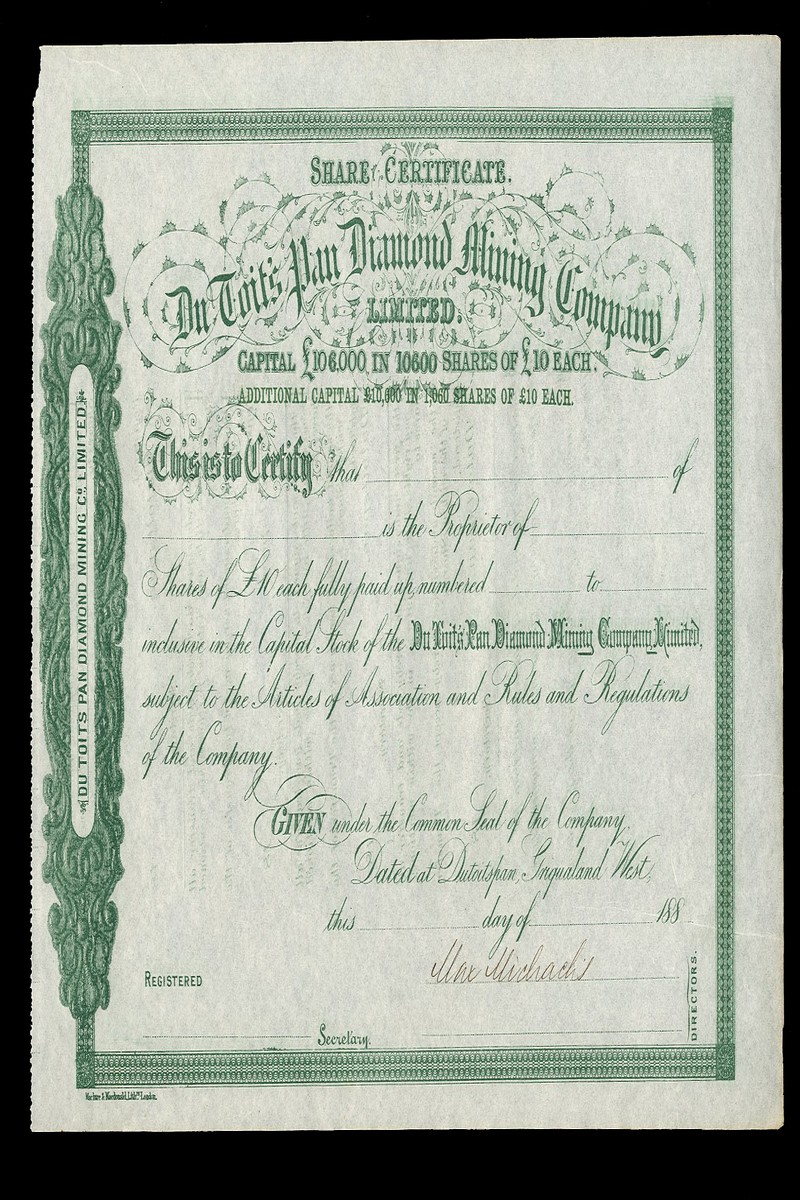 SHARE CERTIFICATE.
Du Toit's Pan Diamond Mining Company
LIMITED.
CAPITAL £106,000, IN 10600 SHARES OF £10 EACH.
ADDITIONAL CAPITAL £10,600 IN 1,060 SHARES OF £10 EACH.
This is to Certify that of
is the Proprietor of
Shares of £10 each fully paid up, numbered to
inclusive in the Capital Stock of the Du Toit's Pan Diamond Mining Company, Limited,
subject to the Articles of Association and Rules and Regulations
of the Company.
GIVEN under the Common Seal of the Company.
Dated at Dutoitspan, Griqualand West,
this day of 188
Max Michaelis
REGISTERED
DIRECTORS.
Secretary.
DU TOITS PAN DIAMOND MINING CO. LIMITED.
Maclure & Macdonald, Lith. London.